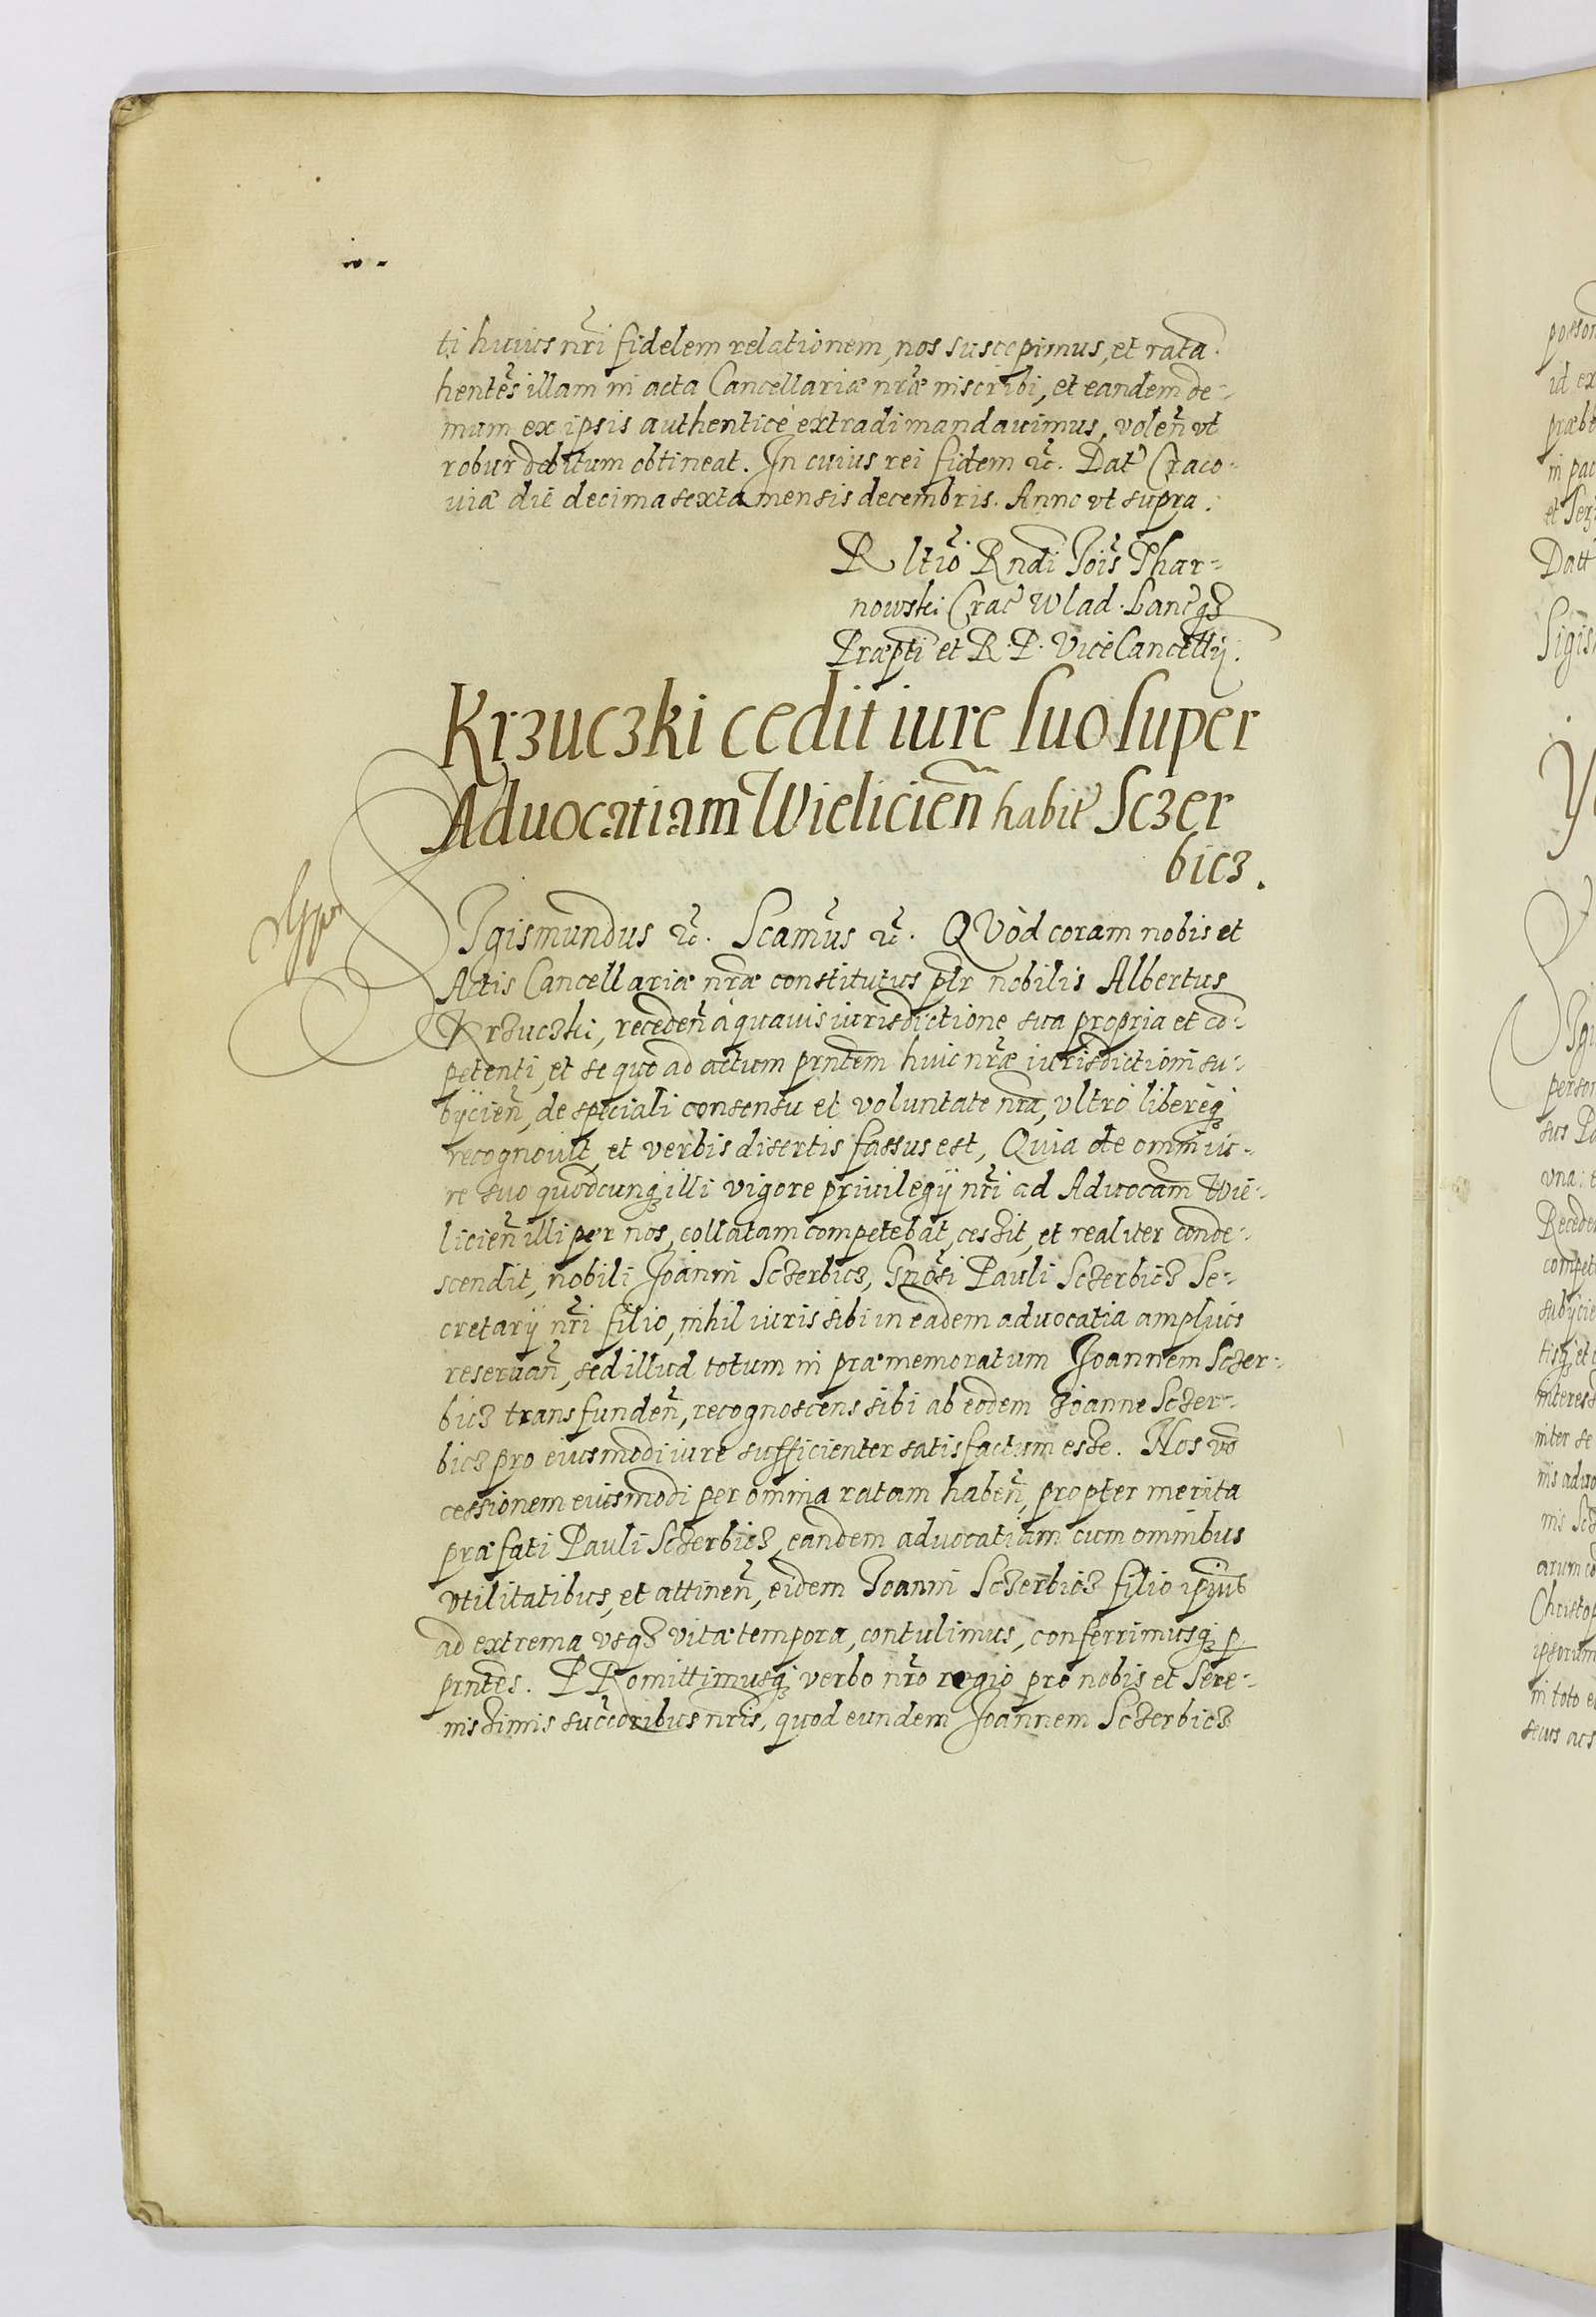 ti huius nři fidelem relationem, nos suscepimus, et ratã
hentẽs illam in acta Cancellariæ nřæ inscribi, et eandem de-
mum ex ipsis authenticè extradi mandauimus, volen̄ vt
robur debitum obtineat. In cuius rei fidem ꝛc̃. Dat̃ Craco-
uiæ die decima sexta mensis decembris. Anno vt supra.
Rltio Rndi Iois Thar-
nowski Crac̃ Wlad. Lanc̃qȝ
Præpti et R. P. ViceCancellÿ.
Krzuczki cedit iure suo super
Aduocatiam Wielicien̄ habit̃ Sczer
bicz.
SIgismundus ꝛc̃. Scamus ꝛc̃. QVòd coram nobis et
Actis Cancellariæ nræ constitutus plr nobilis Albertus
Krzuczki, receden̄ à quauis iurisdictione sua propria et cõ-
petenti, et se quo ad actum prñtem huic nræ iurisdictioni su-
bÿcien̄, de speciali consensu et voluntate nra, vltrò liberèq
recognouit, et verbis disertis fassus est, Quia de omni iu-
re suo quodcunq illi vigore priuilegÿ nři ad Aduocam Wie-
licien̄ illi per nos, collatam competebat, cessit, et realiter conde-
scendit, nobili Joanni Sczerbicz, Gnosi Pauli Sczerbicz Se-
cretarÿ nři filio, nihil iuris sibi in eadem aduocatia amplius
reseruan̄, sed illud totum in præmemoratum Joannem Sczer-
bicz transfunden̄, recognoscens sibi ab eodem Joanne Sczer-
bicz pro eiusmodi iure sufficienter satisfactum esse. Nos vo
cessionem eiusmodi per omnia ratam haben̄, propter merita
præfati Pauli Sczerbicz, eandem aduocatiam cum omnibus
vtilitatibus, et attinen̄, eidem Joanni Sczerbicz filio ipsius
ad extrema vsqȝ vitæ tempora, contulimus, conferrimusq p
prñtes. PRomittimusq verbo nro regio pro nobis et Sere-
nissimis succoribus nris, quod eundem Joannem Sczerbicz